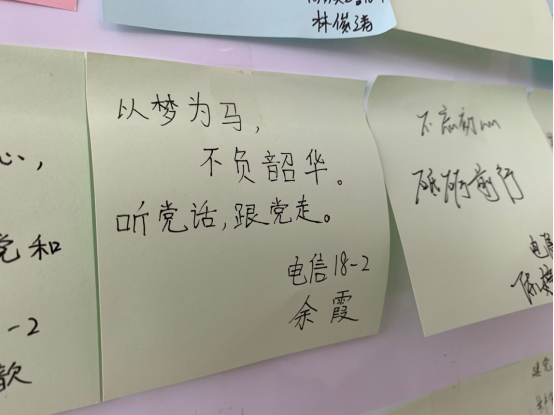 林俊涛
以梦为马，
不负韶华。
听党话，跟党走。
电信18-2
余霞
心，
党和
-2
歆
不忘初心
砥砺前行
电信
陈